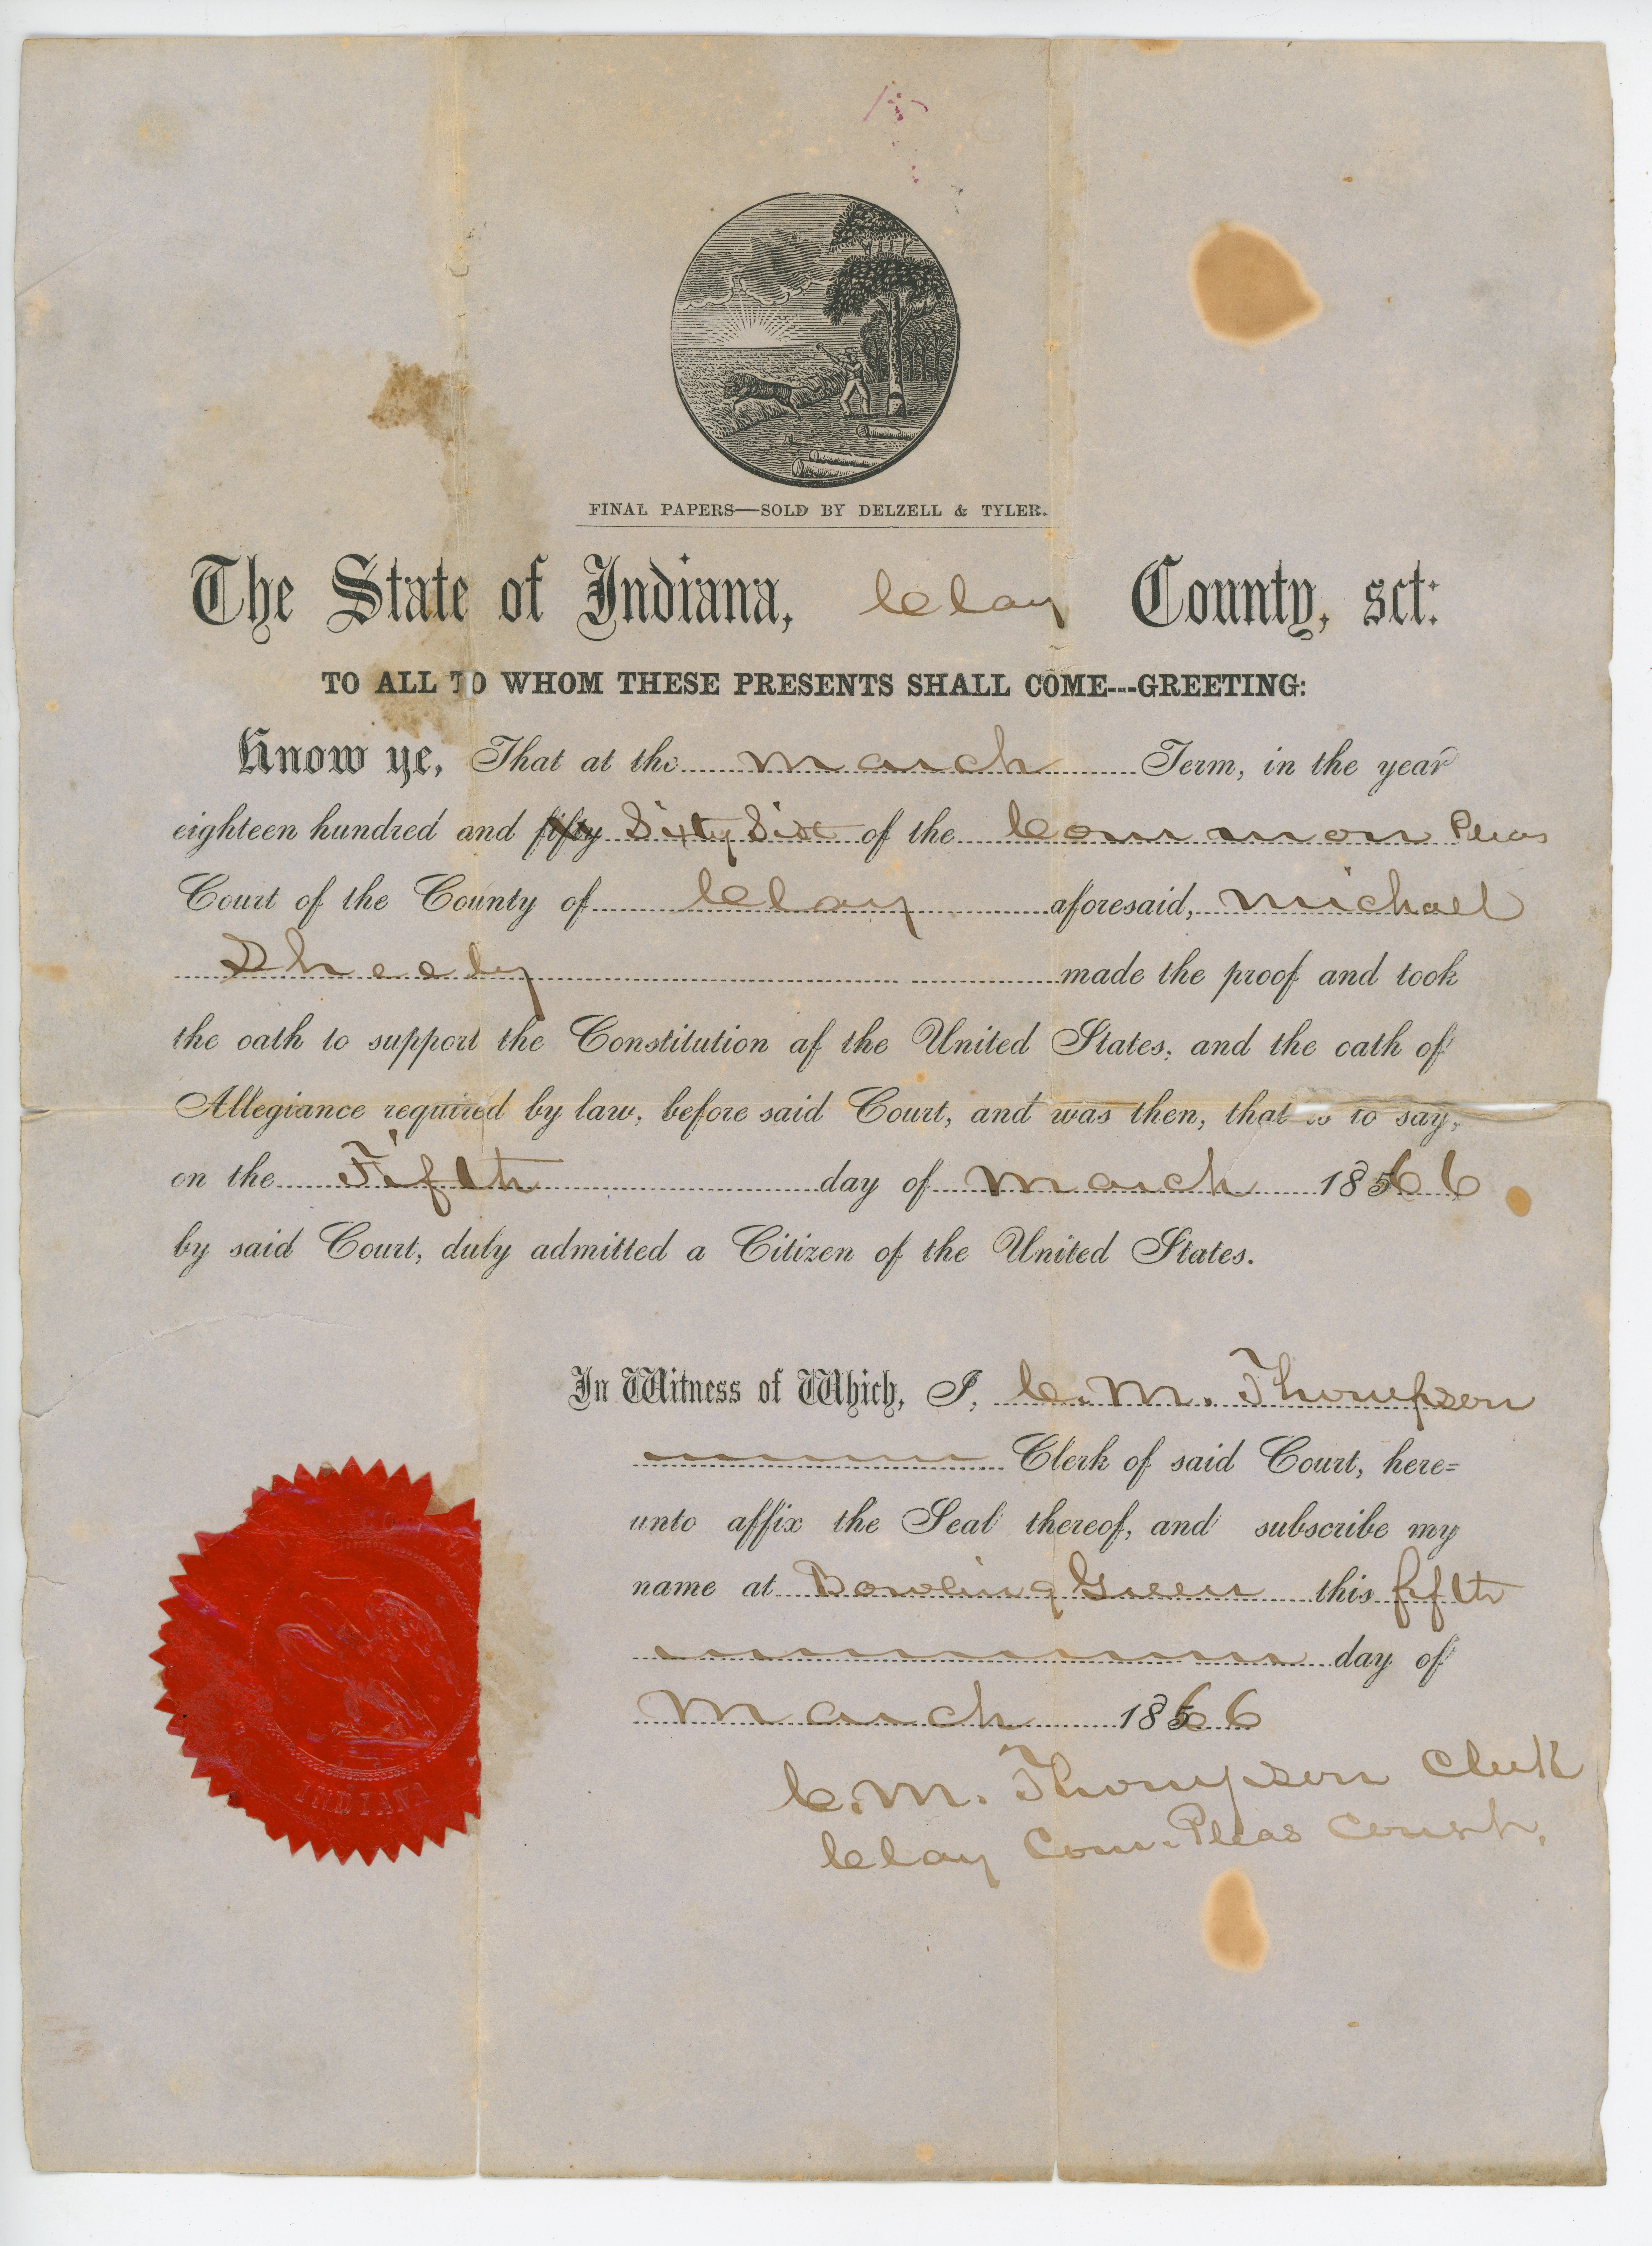 FINAL PAPERS—SOLD BY DELZELL & TYLER.
The State of Indiana, Clay County, sct:
TO ALL TO WHOM THESE PRESENTS SHALL COME---GREETING:
Know ye, That at the March Term, in the year
eighteen hundred and fifty Sixty Six of the Common Pleas
Court of the County of Clay aforesaid, Michael
Sheehy made the proof and took
the oath to support the Constitution af the United States, and the oath of
Allegiance required by law, before said Court, and was then, that is to say,
on the Fifth day of March 1866
by said Court, duly admitted a Citizen of the United States.
In Witness of Which, I, C. M. Thompson
Clerk of said Court, here=
unto affix the Seal thereof, and subscribe my
name at Bowling Green this fifth
day of
March 1866
C. M. Thompson Clerk
Clay Com. Pleas Court.
INDIANA